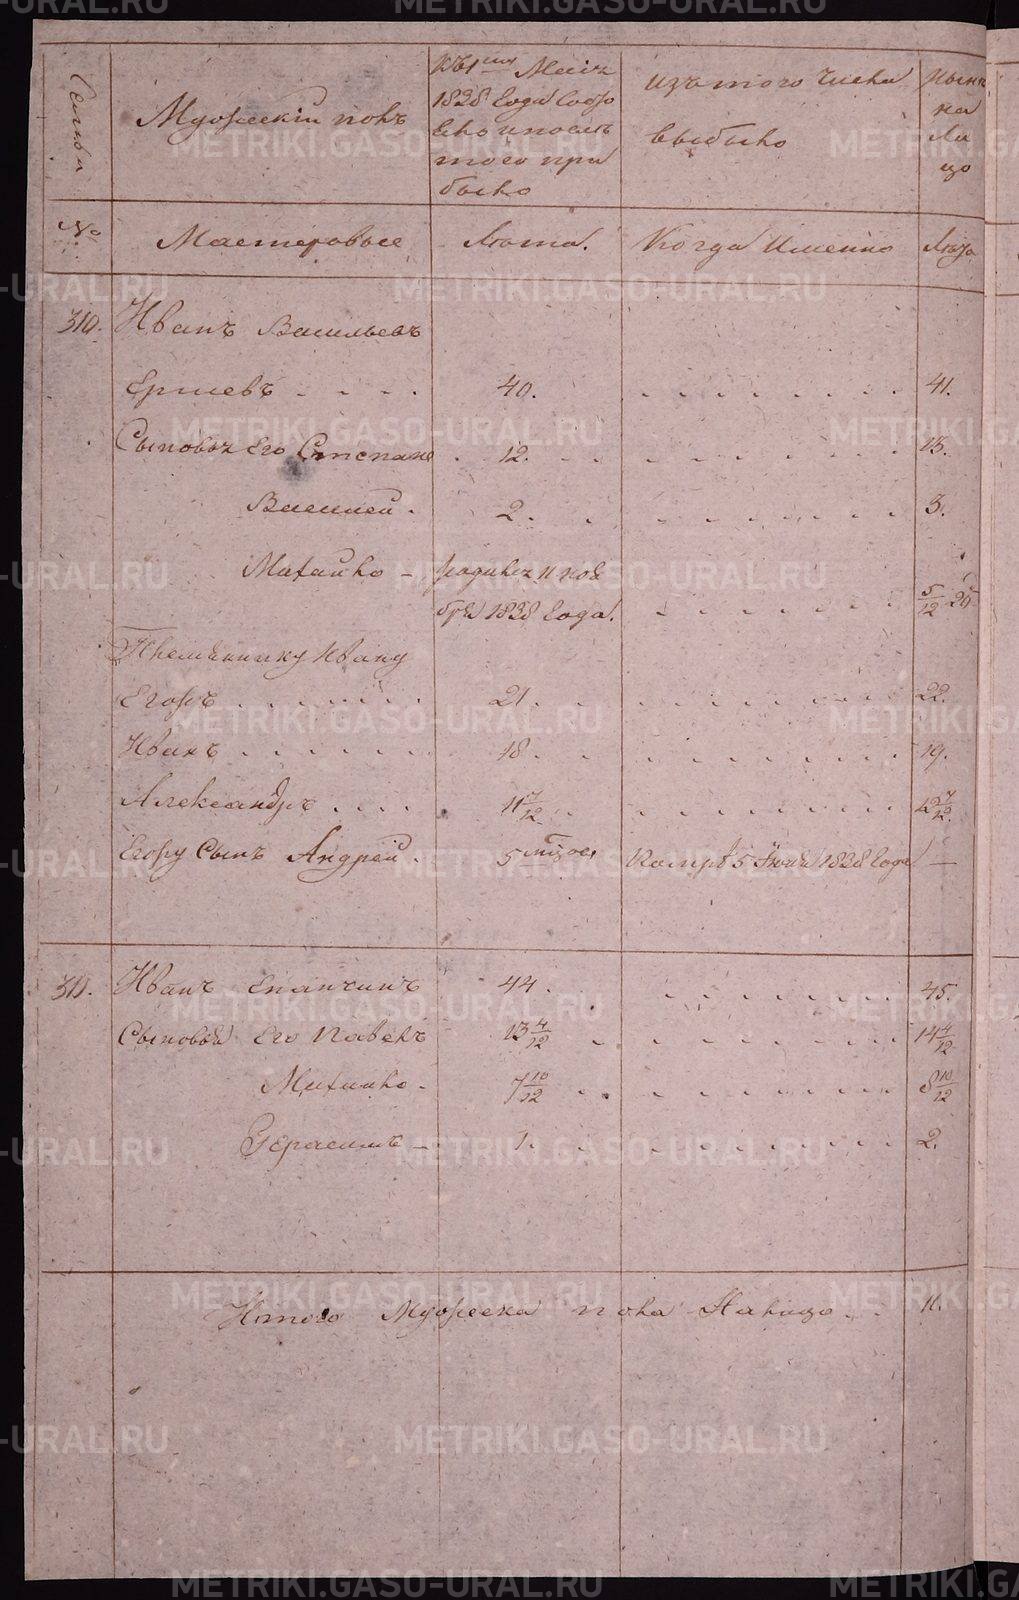 Семьи
Мужескій полъ
Къ 1 числ Маія
1838 Года Состо
яло и послѣ
того при
было
Изъ того Числа
выбыло
Нынѣ
на
Ли
цо
№
Мастеровые
Лѣта.
Когда Именно
Лѣта
310. Иванъ Васильевъ
Ершевъ 40. 41.
Сыновья Его Степанъ 12. 13.
Василей 2. 3.
Михайло родился 11 Ноя
бря 1838 Года. 5/12
Племянники Ивану
Егоръ 21. 22.
Иванъ 18. 19.
Александръ 11 7/12 12 7/12
Егору Сынъ Андрей 5 мѣсец Помръ 5 Іюня 1838 Года —
311. Иванъ Епанчинъ 44. 45.
Сыновья Его Павелъ 13 4/12 14 4/12
Михайло 7 10/12 8 10/12
Герасимъ 1. 2.
Итого Мужеска пола На лицо 11.
METRIKI.GASO-URAL.RU